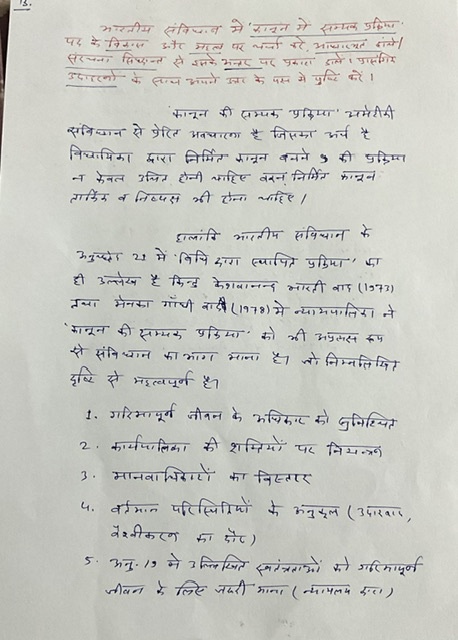 13.
भारतीय संविधान में 'कानून में सम्यक प्रक्रिया'
पद के विकास और महत्व पर चर्चा करें, आधारभूत ढांचे/
संरचना सिद्धान्त से इसके अन्तर पर प्रकाश डालें। प्रासंगिक
उदाहरणों के साथ अपने उत्तर के पक्ष में पुष्टि करें।
'कानून की सम्यक प्रक्रिया' अमेरिकी
संविधान से प्रेरित अवधारणा है जिसका अर्थ है
विधायिका द्वारा निर्मित कानून बनाने की प्रक्रिया
न केवल उचित होनी चाहिए वरन् निर्मित कानून
तार्किक व निष्पक्ष भी होना चाहिए।
हालांकि भारतीय संविधान के
अनुच्छेद 21 में 'विधि द्वारा स्थापित प्रक्रिया' का
ही उल्लेख है किन्तु केशवानन्द भारती वाद (1973)
तथा मेनका गाँधी वाद (1978) में न्यायपालिका ने
'कानून की सम्यक प्रक्रिया' को भी अप्रत्यक्ष रूप
से संविधान का भाग माना है। जो निम्नलिखित
दृष्टि से महत्वपूर्ण है।
1. गरिमापूर्ण जीवन के अधिकार को सुनिश्चित
2. कार्यपालिका की शक्तियों पर नियन्त्रण
3. मानवाधिकारों का विस्तार
4. वर्तमान परिस्थितियों के अनुकूल (उदारवाद,
वैश्वीकरण का दौर)
5. अनु. 19 में उल्लिखित स्वतंत्रताओं को गरिमापूर्ण
जीवन के लिए जरूरी माना (न्यायालय द्वारा)